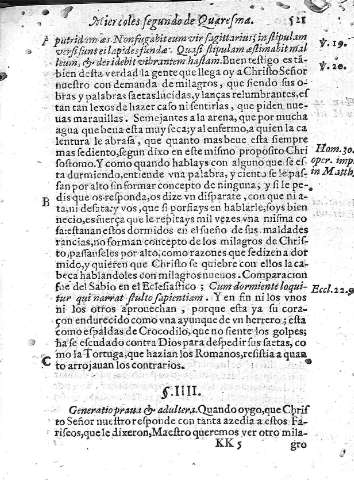 Miercoles segundo de Quaresma. 521
A putridum æs Nonfugabit eum vir sagittarius; in stipulam
versi sunt ei lapides fundæ. Quasi stipulam æstimabit mal
leum, & deridebit vibrantem hastam. Buen testigo es tã
bien desta verdad la gente que llega oy a Christo Señor
nuestro con demanda de milagros, que siendo sus o-
bras y palabras saetas lucidas, y lanças relumbrantes, es
tan tan lexos de hazer caso ni sentirlas, que piden nue-
uas marauillas. Semejantes a la arena, que por mucha
agua que beua esta muy seca; y al enfermo, a quien la ca
lentura le abrasa, que quanto mas beue esta siempre
mas sediento, segun dixo en este mismo proposito Chri
sostomo. Y como quando hablays con alguno que se es-
ta durmiendo, entiende vna palabra, y ciento se le pas-
san por alto sin formar concepto de ninguna; y si le pe-
B dis que os responda, os dize vn disparate, con que ni a-
ta, ni desata; y vos, que si porfiays en hablarle, soys bien
necio, es fuerça que le repitays mil vezes vna misma co
sa: estauan estos dormidos en el sueño de sus maldades
rancias, no forman concepto de los milagros de Chris-
to, passanseles por alto, como razones que se dizen a dor
mido, y quieren que Christo se quiebre con ellos la ca-
beça hablandoles con milagros nueuos. Comparacion
fue del Sabio en el Eclesiastico; Cum dormiente loqui-
tur qui narrat stulto sapientiam. Y en fin ni los vnos
ni los otros aprouechan, porque esta ya su cora-
çon endurecido como vna ayunque de vn herrero; esta
como espaldas de Crocodilo, que no siente los golpes;
ha se escudado contra Dios para despedir sus saetas, co-
mo la Tortuga, que hazian los Romanos, resistia a quan
C to arrojauan los contrarios.
§. IIII.
Generatio praua & adultera. Quando oygo, que Chris
to Señor nuestro responde con tanta azedia a estos Fa-
riseos, que le dixeron, Maestro queremos ver otro mila-
KK 5 gro
V. 19.
V. 20.
Hom. 30.
oper. imp.
in Matth.
Eccl. 22. 9